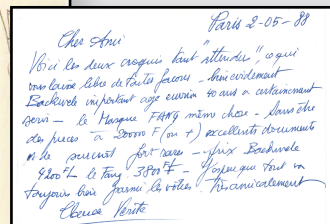 Paris 2-05-88
Cher Ami
Voici les deux croquis tant "attendu", ce qui
vous laisse libre de toutes facons - bien evidement
Bachwele important age environ 40 ans a certainement
servi - le Masque FANG même chose - Sans être
des pieces à 20000 F (ou +) excellents documents
et le surunt fort rares - prix Bachwele
4200 Ft le Fang 3800 Ft - J'espere que tout va
toujours bien parmi les vôtres - bien amicalement